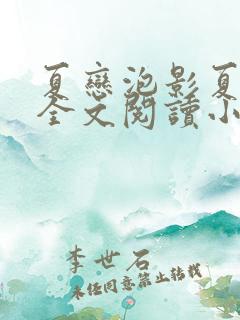 夏戀泡影夏
全文閱讀小
李世石
未经同意禁止转载